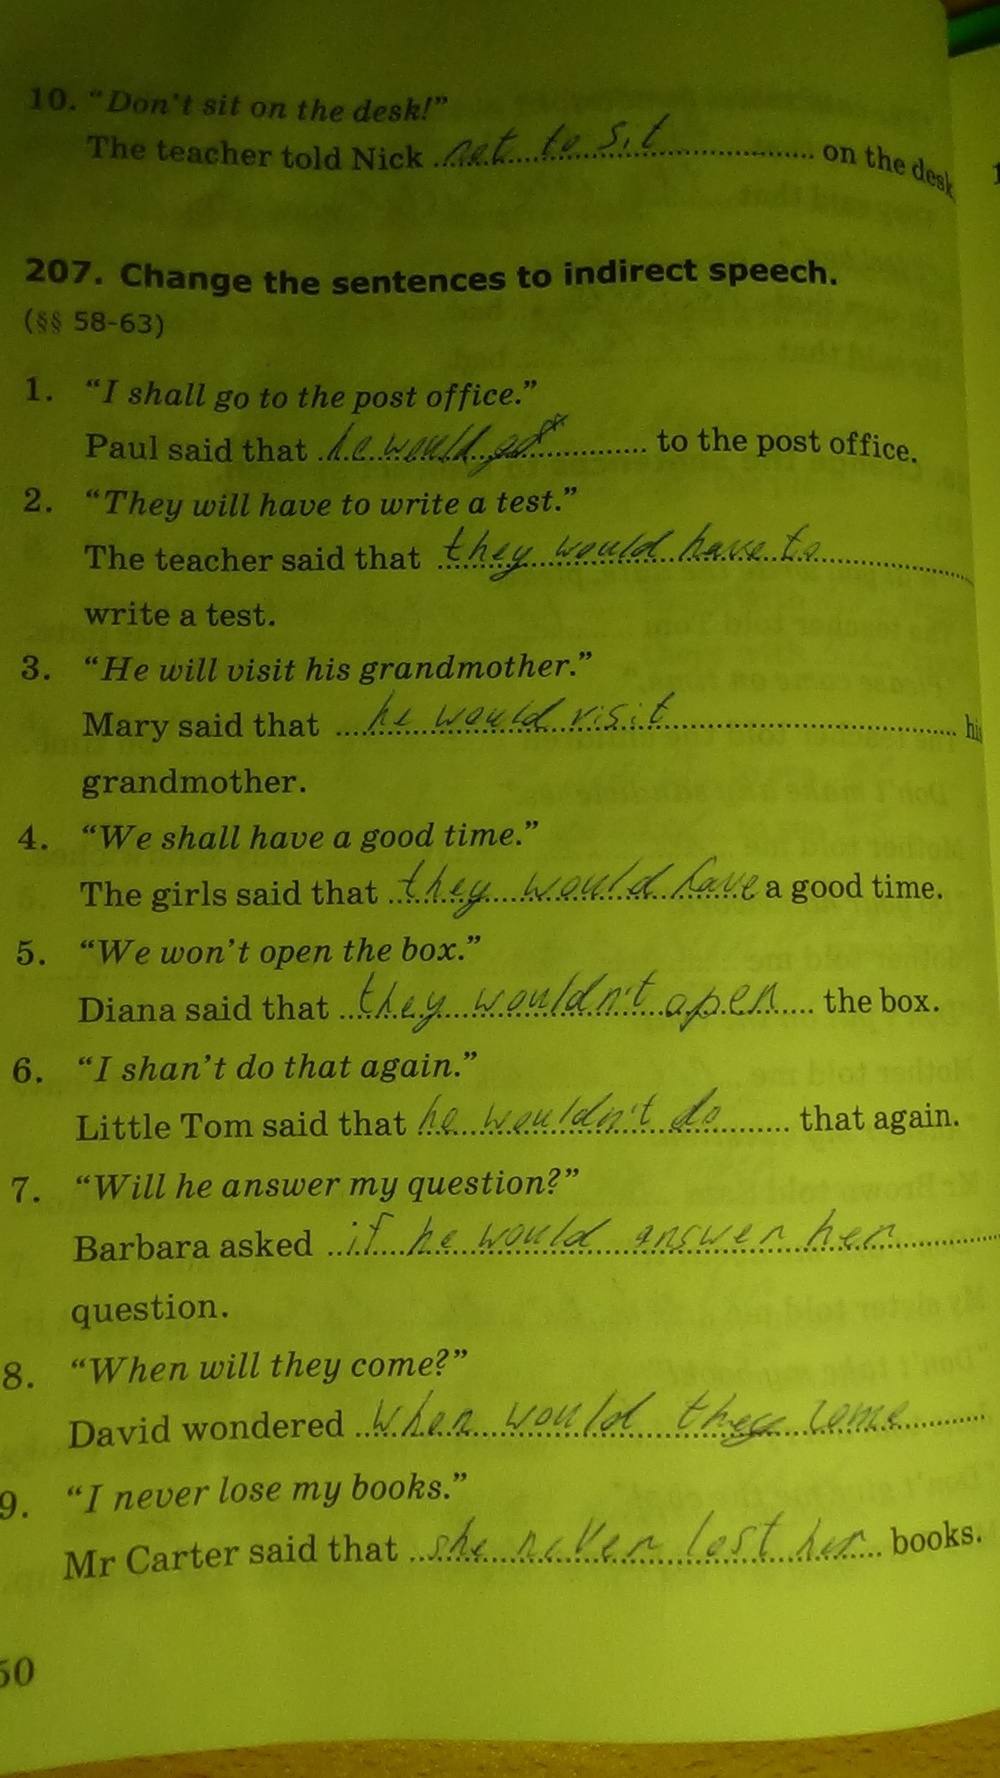 10. “Don’t sit on the desk!”
The teacher told Nick not to sit on the desk
207. Change the sentences to indirect speech.
(§§ 58-63)
1. “I shall go to the post office.”
Paul said that he would go to the post office.
2. “They will have to write a test.”
The teacher said that they would have to
write a test.
3. “He will visit his grandmother.”
Mary said that he would visit his
grandmother.
4. “We shall have a good time.”
The girls said that they would have a good time.
5. “We won’t open the box.”
Diana said that they wouldn't open the box.
6. “I shan’t do that again.”
Little Tom said that he wouldn't do that again.
7. “Will he answer my question?”
Barbara asked if he would answer her
question.
8. “When will they come?”
David wondered when would they come
9. “I never lose my books.”
Mr Carter said that she never lost her books.
50